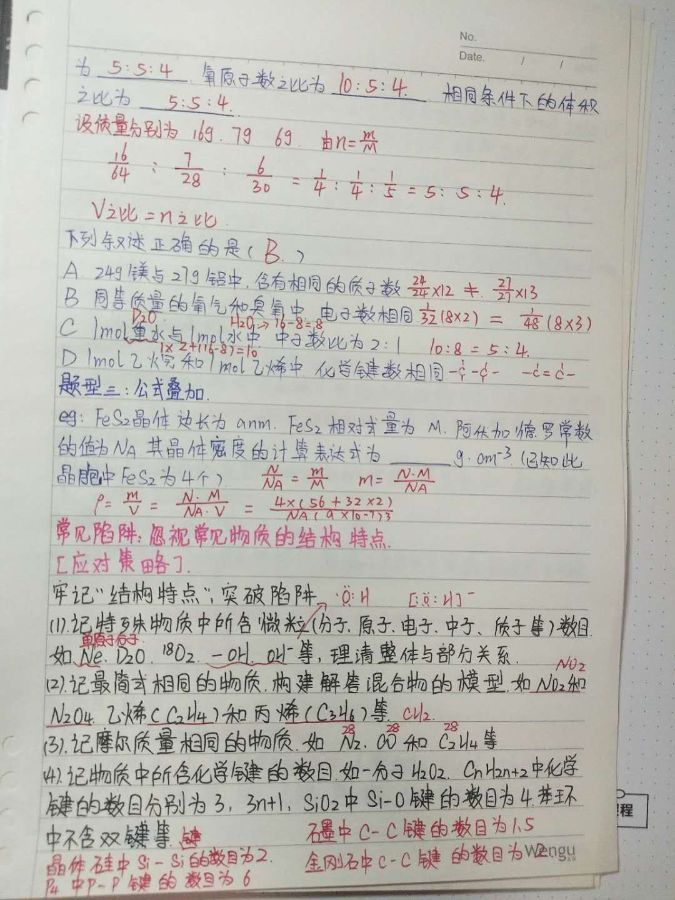 No.
Date. / /
为 5:5:4 . 氧原子数之比为 10:5:4. 相同条件下的体积
之比为 5:5:4.
设质量分别为 16g. 7g 6g. 由n=m/M
16/64 : 7/28 : 6/30 = 1/4 : 1/4 : 1/5 = 5: 5: 4.
V之比=n之比.
下列叙述正确的是( B. )
A 24g镁与27g铝中,含有相同的质子数 24/24×12 ≠ 27/27×13
B 同等质量的氧气和臭氧中 电子数相同 1/32(8×2) = 1/48(8×3)
D2O H2O→16-8=8
C 1mol重水与1mol水中 中子数比为2:1 10:8=5:4.
1×2+(16-8)=10
D 1mol乙烷和1mol乙烯中 化学键数相同 -C-C- -C=C-
题型三:公式叠加.
eg: FeS2晶体边长为 anm. FeS2 相对式量为 M. 阿伏加德罗常数
的值为NA 其晶体密度的计算表达式为 g·cm-3 (已知此
晶胞中FeS2为4个) N/NA = m/M m= N·M/NA
ρ= m/V = N·M/NA·V = 4×(56+32×2)/NA(a×10-7)3
常见陷阱:忽视常见物质的结构特点.
[应对策略].
牢记"结构特点",突破陷阱 ·Ö:H [:Ö:H]-
(1).记特殊物质中所含微粒(分子、原子、电子、中子、质子等)数目.
单原子分子
如 Ne. D2O. 18O2. -OH. OH-等,理清整体与部分关系. NO2
(2).记最简式相同的物质.构建解答混合物的模型.如NO2和
N2O4. 乙烯(C2H4)和丙烯(C3H6)等. CH2.
28 28 28
(3).记摩尔质量相同的物质.如 N2. CO 和 C2H4等
(4).记物质中所含化学键的数目.如一分子H2O2. CnH2n+2中化学
键的数目分别为3, 3n+1, SiO2中Si-O键的数目为4.苯环
中不含双键等. 键 石墨中C-C键的数目为1.5
晶体硅中Si-Si的数目为2. 金刚石中C-C键的数目为2
P4 中P-P键的数目为6
Wengu
程